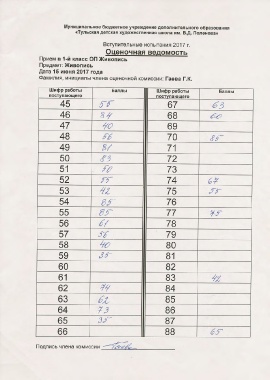 Муниципальное бюджетное учреждение дополнительного образования
«Тульская детская художественная школа им. В.Д. Поленова»
Вступительные испытания 2017 г.
Оценочная ведомость
Прием в 1-й класс ОП Живопись
Предмет: Живопись
Дата 15 июня 2017 года
Фамилия, инициалы члена оценочной комиссии: Гаева Г.К.
Шифр работы поступающего Баллы Шифр работы поступающего Баллы
45 55 67 63
46 84 68 60
47 40 69
48 56 70 85
49 81 71
50 83 72
51 50 73
52 55 74 67
53 42 75 55
54 85 76
55 85 77 75
56 61 78
57 56 79
58 40 80
59 35 81
60 82
61 83 42
62 74 84
63 62 85
64 73 86
65 35 87
66 88 65
Подпись члена комиссии